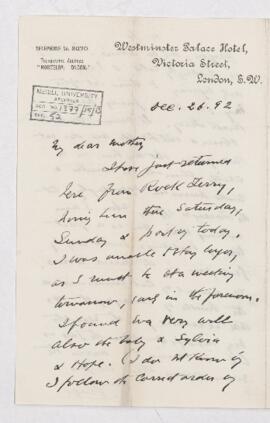 Westminster Palace Hotel,
Victoria Street,
London, S.W.
TELEPHONE No.
TELEGRAPHIC ADDRESS
McGILL UNIVERSITY
ARCHIVES
ACC. NO. 1377/
REF. 52
Dec. 26. 92
My dear Mother
I have just returned
here from Rock Ferry,
having been there Saturday,
Sunday & part of today.
I was unable to stay longer,
as I must be at a meeting
tomorrow, early in the forenoon.
I found Eva very well
also the baby & Sylvia
& Hope. (I do not know if
I follow the correct order of